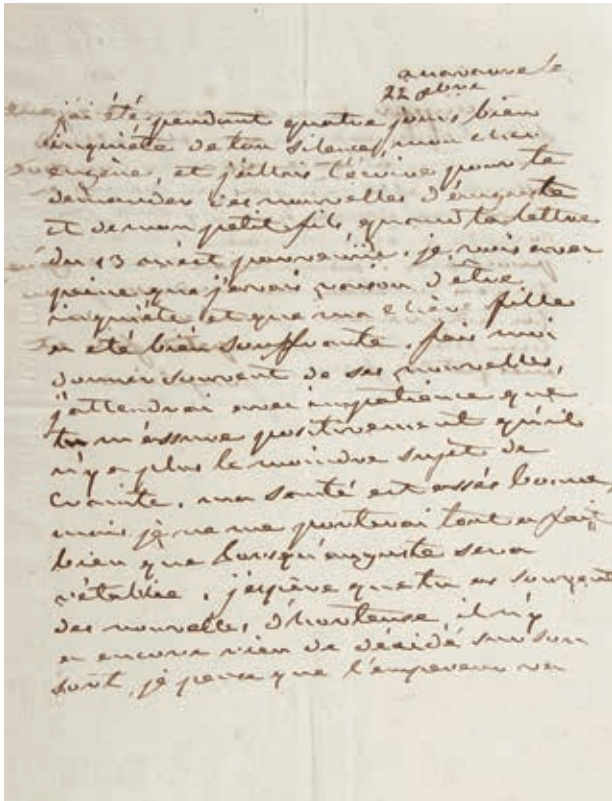 a navarre le
22 xbre
j'ai été pendant quatre jours bien
inquiète de ton silence, mon cher
eugène, et j'allois t'écrire pour te
demander des nouvelles d'auguste
et de mon petit fils, quand ta lettre
du 13 m'est parvenüe. je vois avec
peine que j'avais raison d'être
inquiète et que ma chère fille
a été bien souffrante. fais moi
donner souvent de ses nouvelles,
j'attendrai avec impatience que
tu m'assure positivement qu'il
n'y a plus le moindre sujet de
crainte. ma santé est assés bonne,
mais je ne me porterai tout a fait
bien que lorsqu'auguste sera
rétablie. j'espère que tu as souvent
des nouvelles d'hortense, il n'y
a encore rien de décidé sur son
sort, je pense que l'empereur va